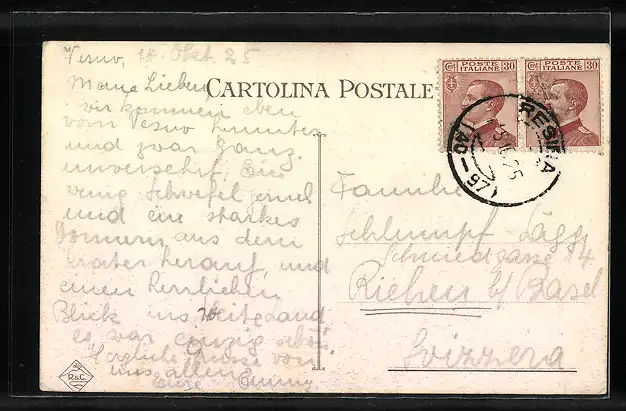 Vesuv, 14. Okt. 25
Meine Lieben
CARTOLINA POSTALE
wir kommen eben
vom Vesuv herunter
und zwar ganz
unversehrt. Ein
wenig Schwefel
und ein starkes
Donnern aus dem
Krater herauf, und
einen herrlichen
Blick ins weite Land
es war einzig schön
Herzliche Grüsse von
uns allen
Eure Emmy
POSTE
ITALIANE
30
POSTE
ITALIANE
30
RESINA
25
Familie
Schlumpf-Jägg
Schmiedgasse 14
Riehen b/ Basel
Svizzera
R&C.